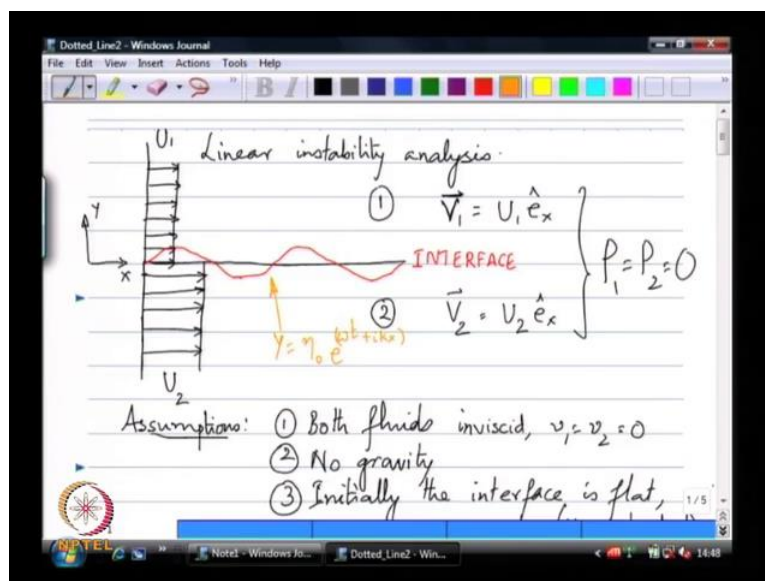 Dotted_Line2 - Windows Journal
File Edit View Insert Actions Tools Help
B I
U₁ Linear instability analysis.
① V⃗₁ = U₁ ê_x
Y
X
INTERFACE
P₁ = P₂ = 0
② V⃗₂ = U₂ ê_x
Y = η₀ e^(ωt + ikx)
U₂
Assumptions: ① Both fluids inviscid, ν₁ = ν₂ = 0
② No gravity
③ Initially the interface is flat,
1/5
NPTEL
Note1 - Windows Jo...
Dotted_Line2 - Win...
14:48